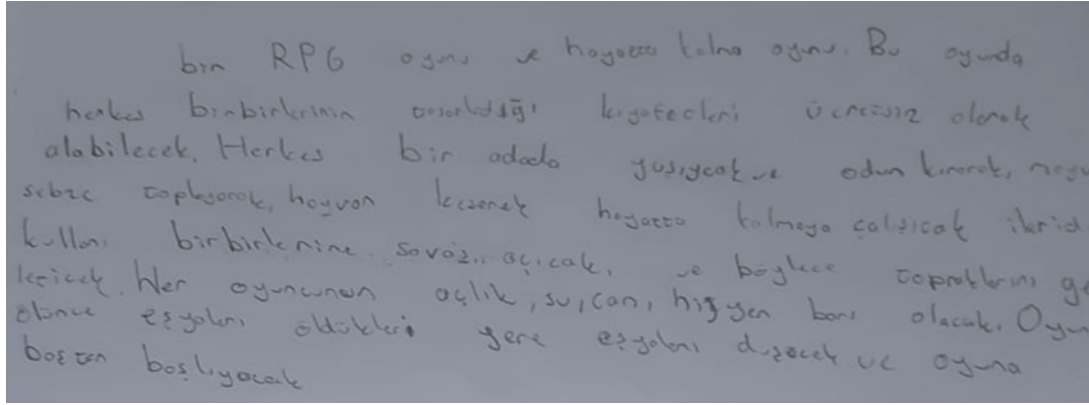 bir RPG oyunu ve hayatta kalma oyunu. Bu oyunda
herkes birbirlerinin tasarladığı kıyafetleri ücretsiz olarak
alabilecek. Herkes bir adada yaşıycak ve odun kırarak,
sebze toplayarak, hayvan keserek hayatta kalmaya çalışıcak
birbirlerine savaş açıcak, ve böylece topraklarını
Her oyuncunun açlık, su, can, hijyen barı olacak.
ölünce eşyaları öldükleri yere eşyaları düşecek ve oyuna
baştan başlıyacak